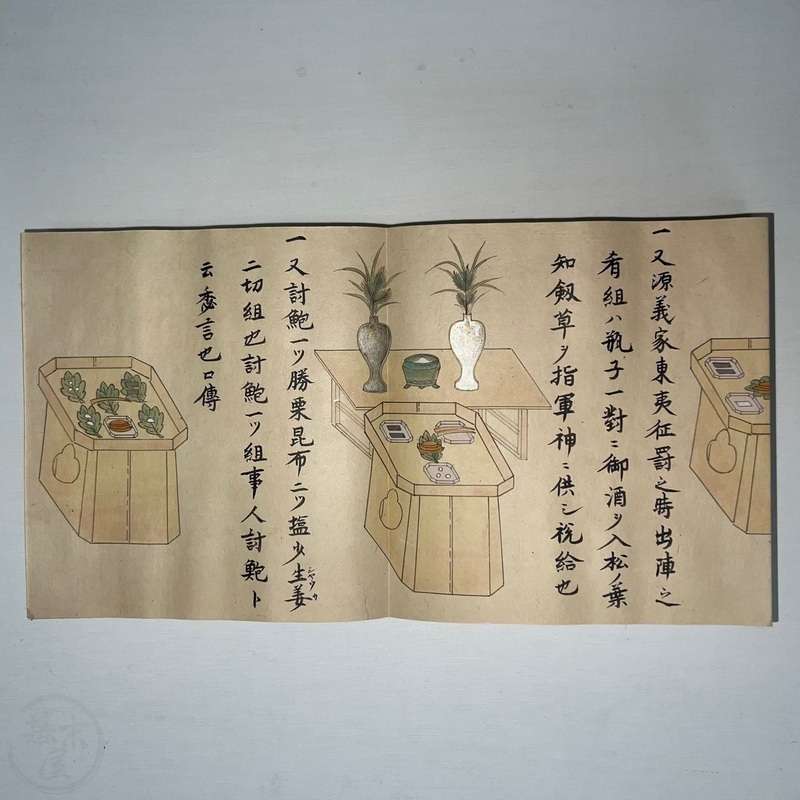 一又源義家東夷征罸之時出陣之
肴組ハ瓶子一對ニ御酒ヲ入松ノ葉
知劔草ヲ指軍神ニ供シ祝給也
一又討鮑一ツ勝栗昆布二ツ塩少生姜
シヤウカ
二切組也討鮑一ツ組事人討鮑ト
云秀言也口傳
幕末屋